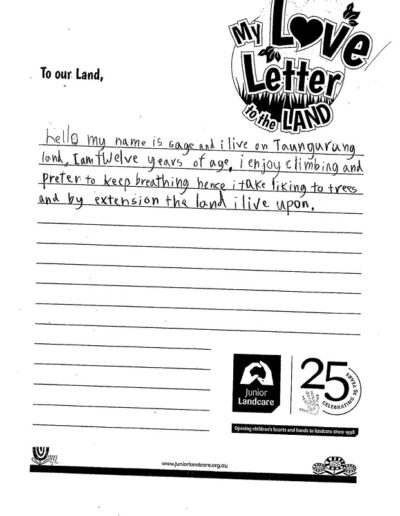 My Love
Letter
to the LAND
To our Land,
hello my name is sage and i live on Taungurung
land, I am twelve years of age, i enjoy climbing and
prefer to keep breathing hence i take liking to trees
and by extension the land i live upon.
Junior
Landcare
25
YEARS
CELEBRATING
Opening children's hearts and hands to landcare since 1998
www.juniorlandcare.org.au